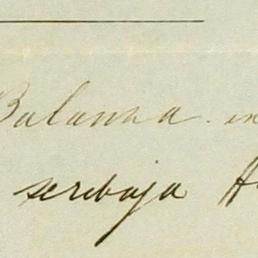 Balanna in
serebaja